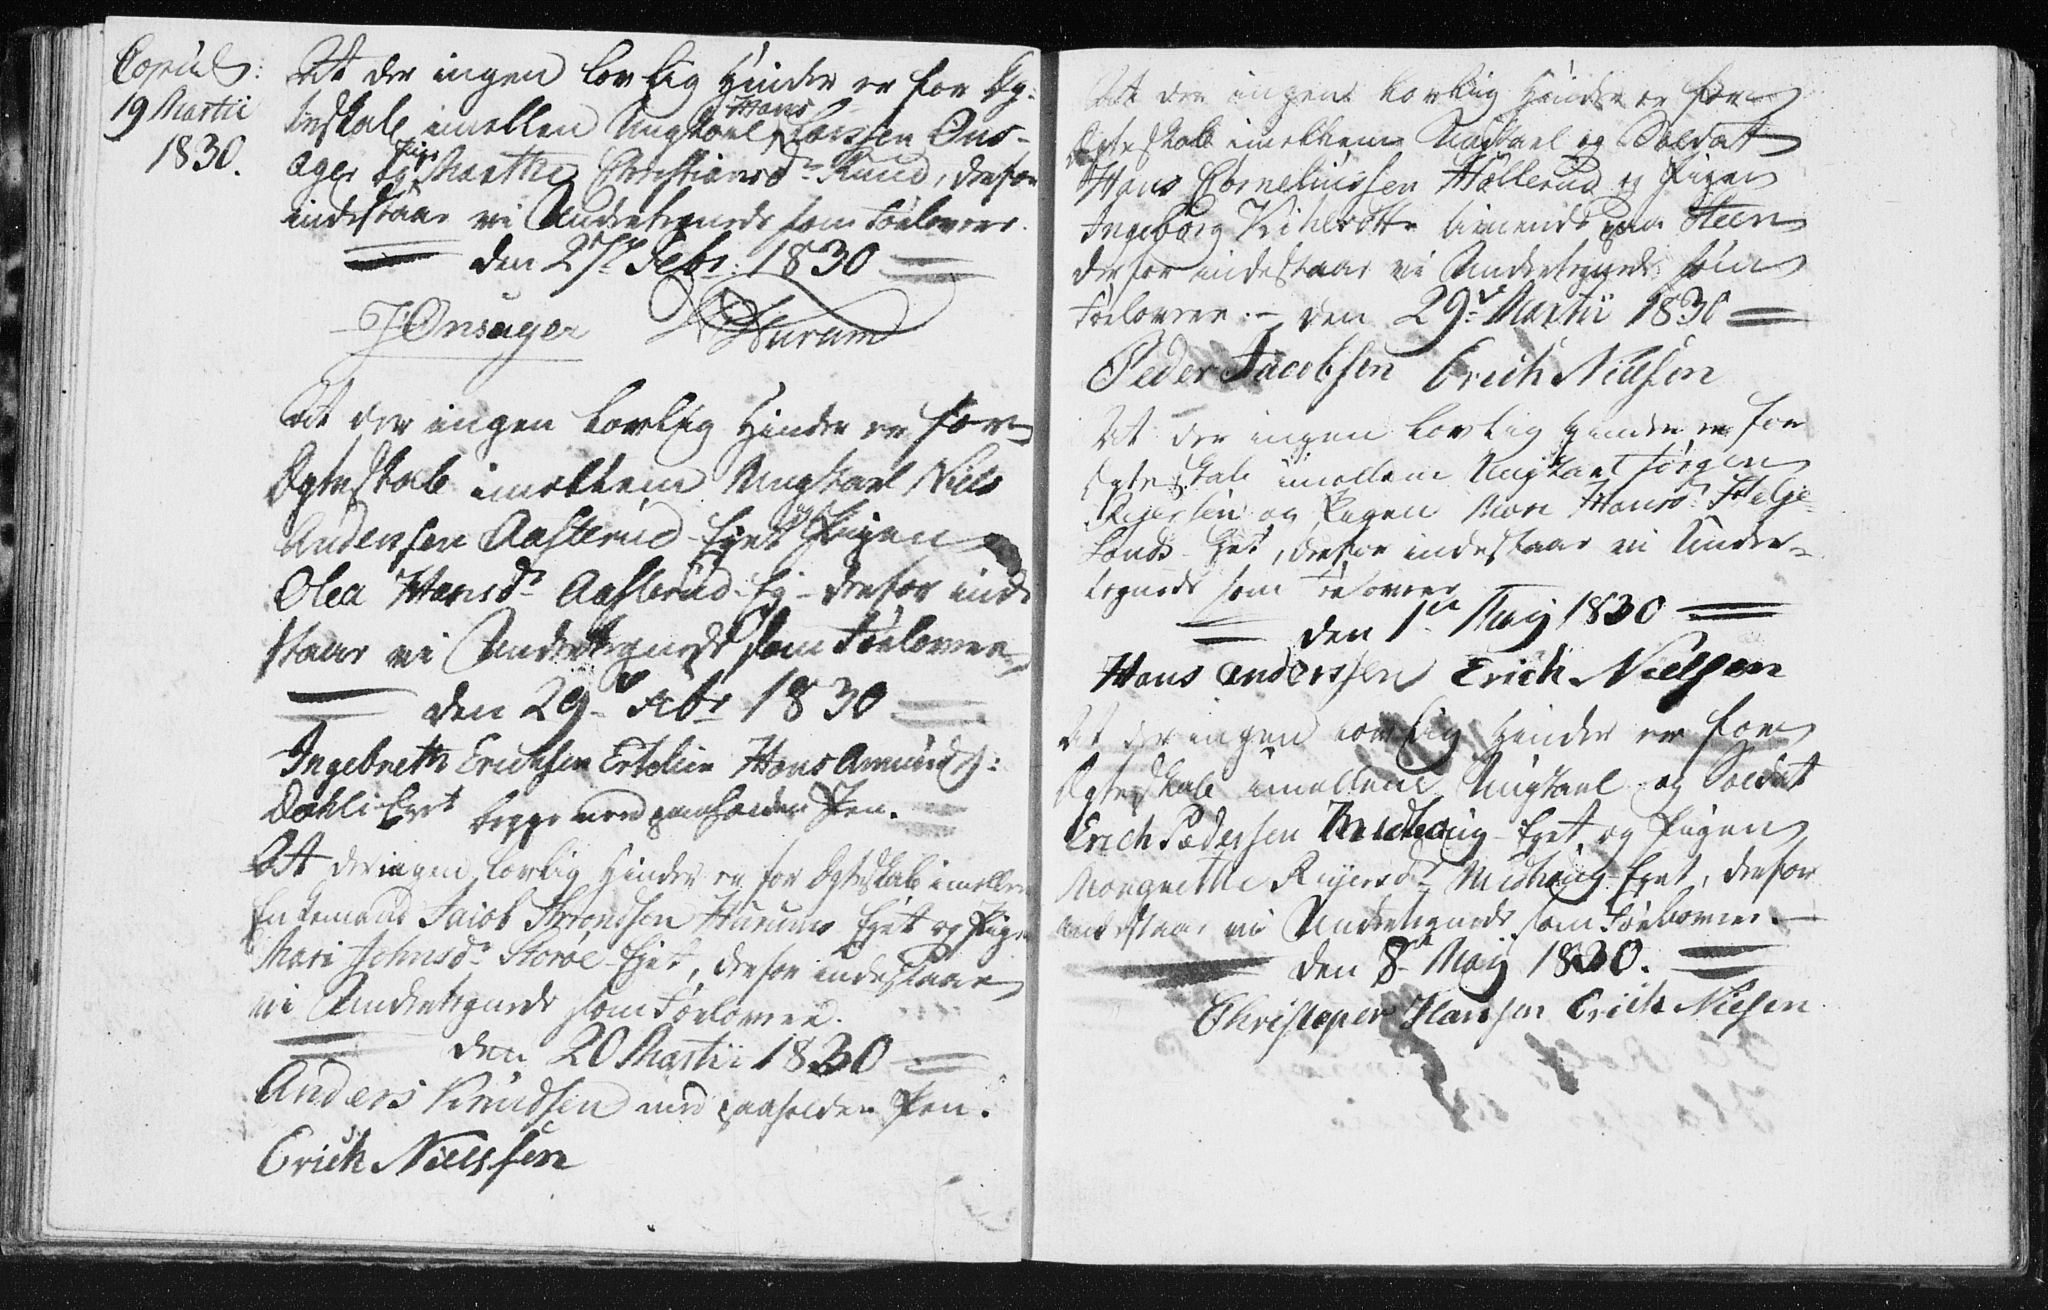 Copul:
19 Martii
1830.
At der ingen lovlig Hinder er for Eg-
teskab imellem Ungkarl Hans Larssen Ons-
ager og Pige Marthe Christiansdr Ruud, derfor
indestaar vi Undertegnede som Forlovere.
den 27de Febr: 1830
J Onsager Hurum
At der ingen lovlig Hinder er for
Egteskab imellem Ungkarl Niels
Anderssen Aasterud Eyet og Pigen
Olea Hansdr Aasterud-Ey- derfor inde
staar vi Undertegnede som Forlovere
den 29de Febr 1830
Ingebreth Erichsen Hans Amunds:
Dahli-Eyet begge med paaholden Pen.
At der ingen lovlig Hinder er for Egteskab imellem
Enkemand Jacob Throndsen Hurums Eyet og Pige
Mari Johnsdr Storøe-Eyet, derfor indestaar
vi Undertegnede som Forlovere.
den 20 Martii 1830
Anders Knudsen med paaholden Pen.
Erich Nielssen
At der ingen lovlig Hinder er for
Egteskab imellem Ungkarl og Soldat
Hans Corneliussen Hollerud og Pigen
Ingeborg tienende paa Steen
derfor indestaar vi Undertegnede som
Forlovere.- den 29de Martii 1830
Peder Jacobsen Erich Nielsen
At der ingen lovlig Hinder er for
Egteskab imellem Ungkarl Jørgen
og Pigen Mari Hansdr Helge-
lands Eyet, derfor indestaar vi Under-
tegnede som Forlovere
den 1de Maij 1830
Hans Anderssen Erich Nielsen
At der ingen lovlig Hinder er for
Egteskab imellem Ungkarl og Soldat
Erich Pedersen Eyet og Pigen
Margrethe Reyersdr Midhaug Eyet, derfor
indestaar vi Undertegnede som Forlovere.-
den 8de Maij 1830.
Christopher Hansen Erich Nielsen